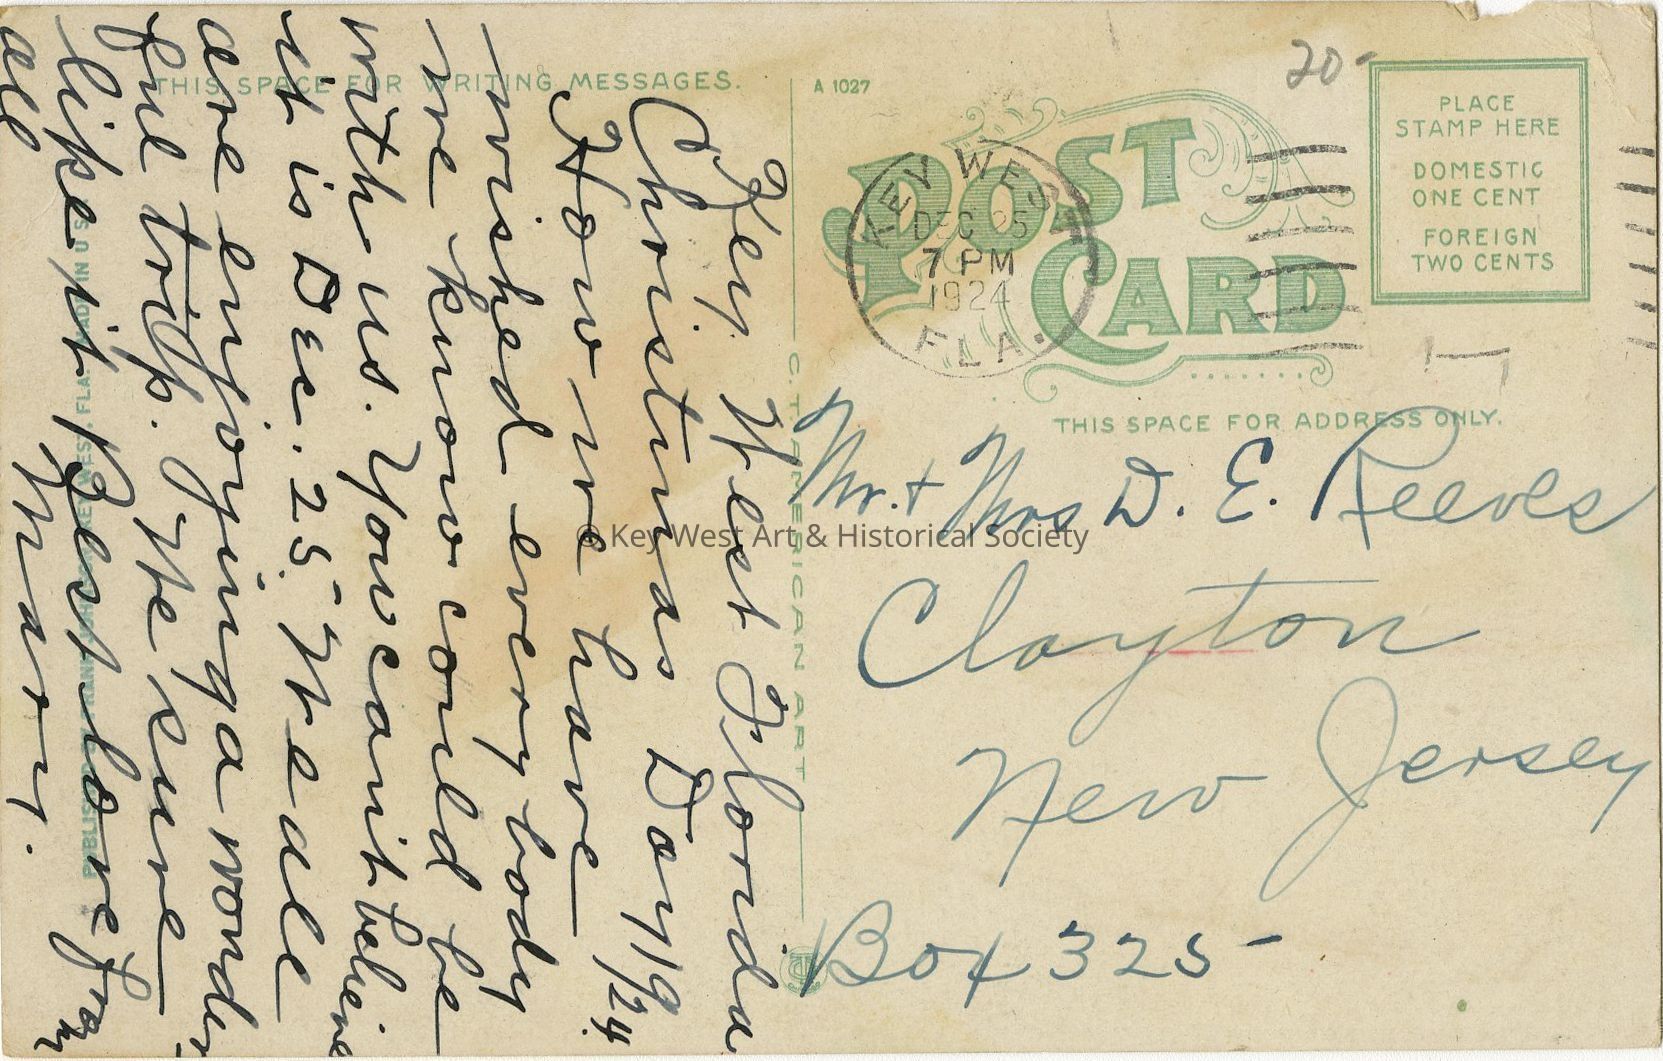 THIS SPACE FOR WRITING MESSAGES.
Key West Florida
Christmas Day 1924.
How we have
wished every body
we know could be
with us. You can't believe
it is Dec. 25. We all
are enjoying a wonder
ful trip. We sure
like it. Best love from
all
Mary.
PUBLISHED BY FRANK JOHNSON, KEY WEST, FLA. MADE IN U S A
C. T. AMERICAN ART
A 1027
POST CARD
KEY WEST
DEC 25
7 PM
1924
FLA.
20-
PLACE
STAMP HERE
DOMESTIC
ONE CENT
FOREIGN
TWO CENTS
THIS SPACE FOR ADDRESS ONLY.
Mr. + Mrs D. E. Reeves
Clayton
New Jersey
Box 325-
© Key West Art & Historical Society